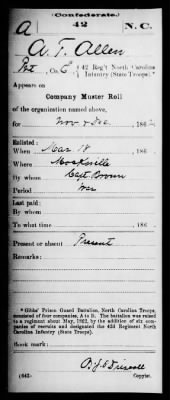 (Confederate.)
A 42 N.C.
A. T. Allen
Pvt, Co. C, 42 Reg't North Carolina
Infantry (State Troops).*
Appears on
Company Muster Roll
of the organization named above,
for Nov & Dec, 186
Enlisted:
When Mar 18, 186
Where Mocksville
By whom Capt. Brown
Period War
Last paid:
By whom
To what time, 186
Present or absent Present
Remarks:
* Gibbs' Prison Guard Battalion, North Carolina Troops,
consisted of four companies, A to D. The battalion was raised
to a regiment about May, 1862, by the addition of six com-
panies of recruits and designated the 42d Regiment North
Carolina Infantry (State Troops).
Book mark:
(642)
Driscoll
Copyist.